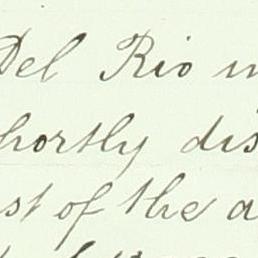 Del Rio
hortly dis
st of the a